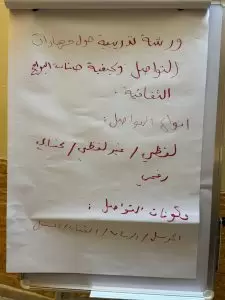 ورشة تدريبية حول مهارات
التواصل وكيفية صناعة البرامج
الثقافية :
انواع التواصل :
لفظي / غير لفظي / كتابي
رقمي
مكونات التواصل :
المرسل / الرسالة / القناة /